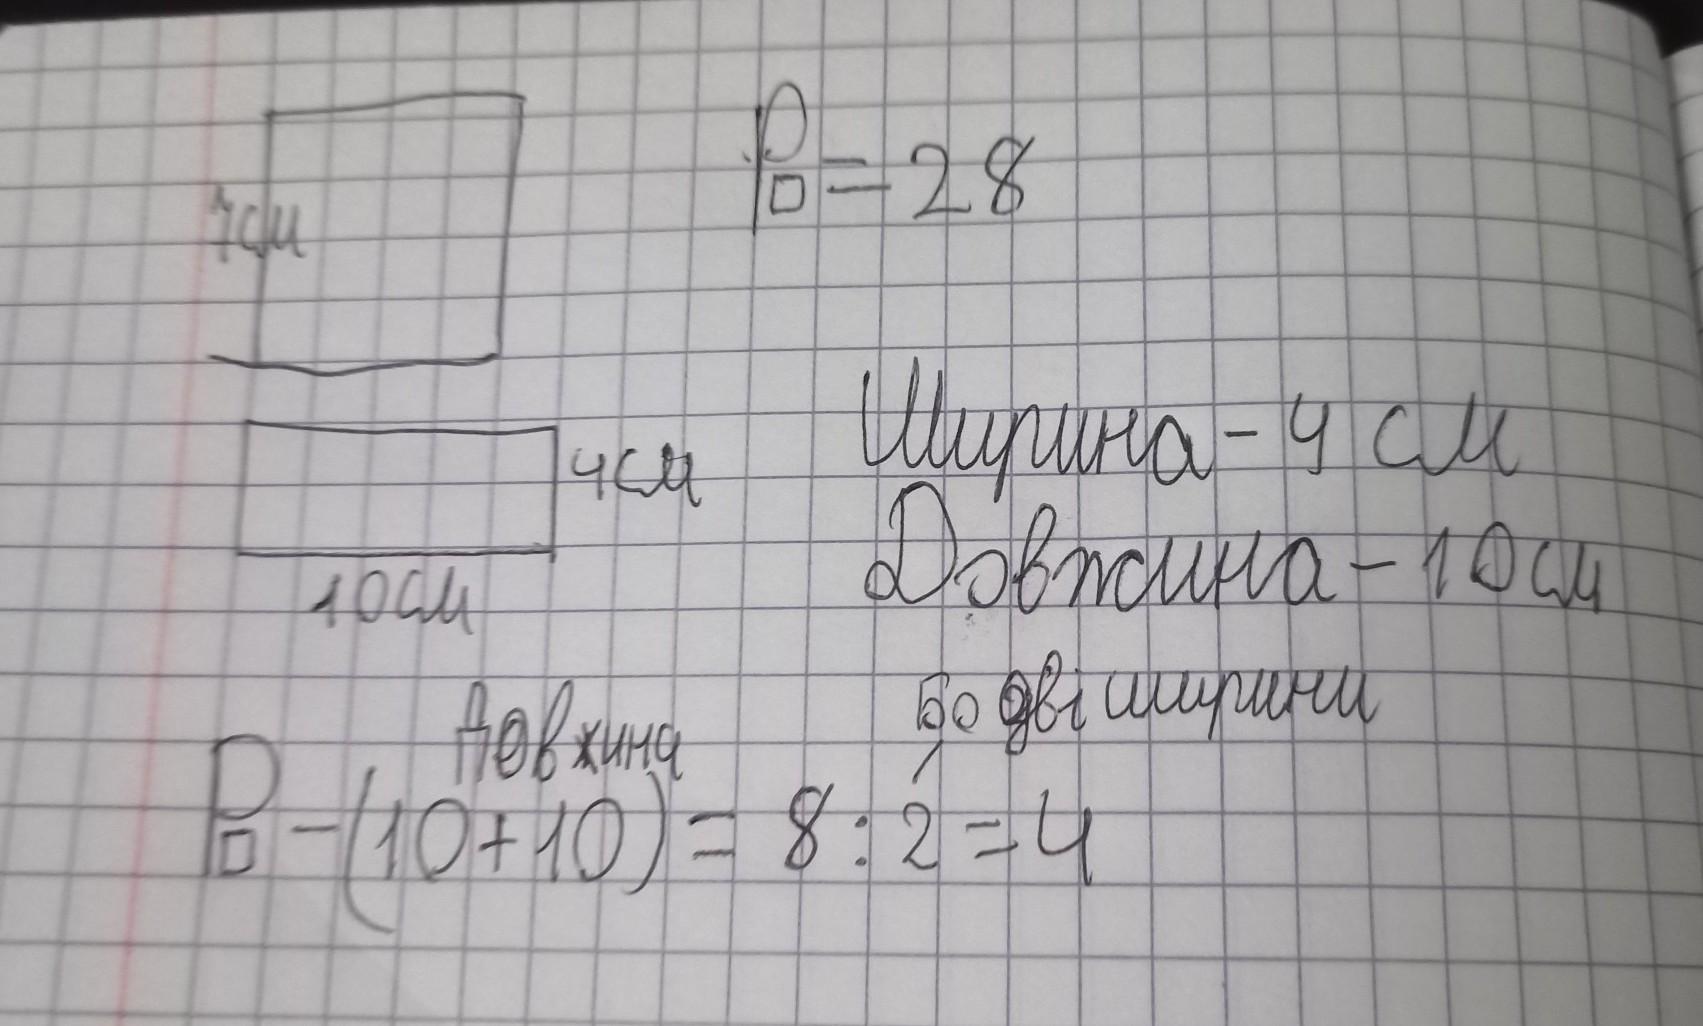 7см
P□=28
4см
Ширина - 4 см
10см
Довжина - 10см
Довжина
бо дві ширини
P□ - (10+10) = 8 : 2 = 4